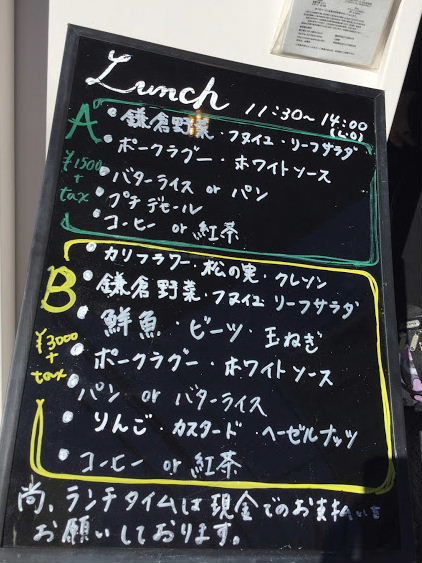 Lunch 11:30〜14:00
(L.O)
A
¥1500
+
tax
・鎌倉野菜・フヌイユ・リーフサラダ
・ポークラグー・ホワイトソース
・バターライス or パン
・プチデセール
・コーヒー or 紅茶
B
¥3000
+
tax
・カリフラワー・松の実・クレソン
・鎌倉野菜・フヌイユ・リーフサラダ
・鮮魚・ビーツ・玉ねぎ
・ポークラグー・ホワイトソース
・パン or バターライス
・りんご・カスタード・ヘーゼルナッツ
・コーヒー or 紅茶
尚、ランチタイムは現金でのお支払いを
お願いしております。